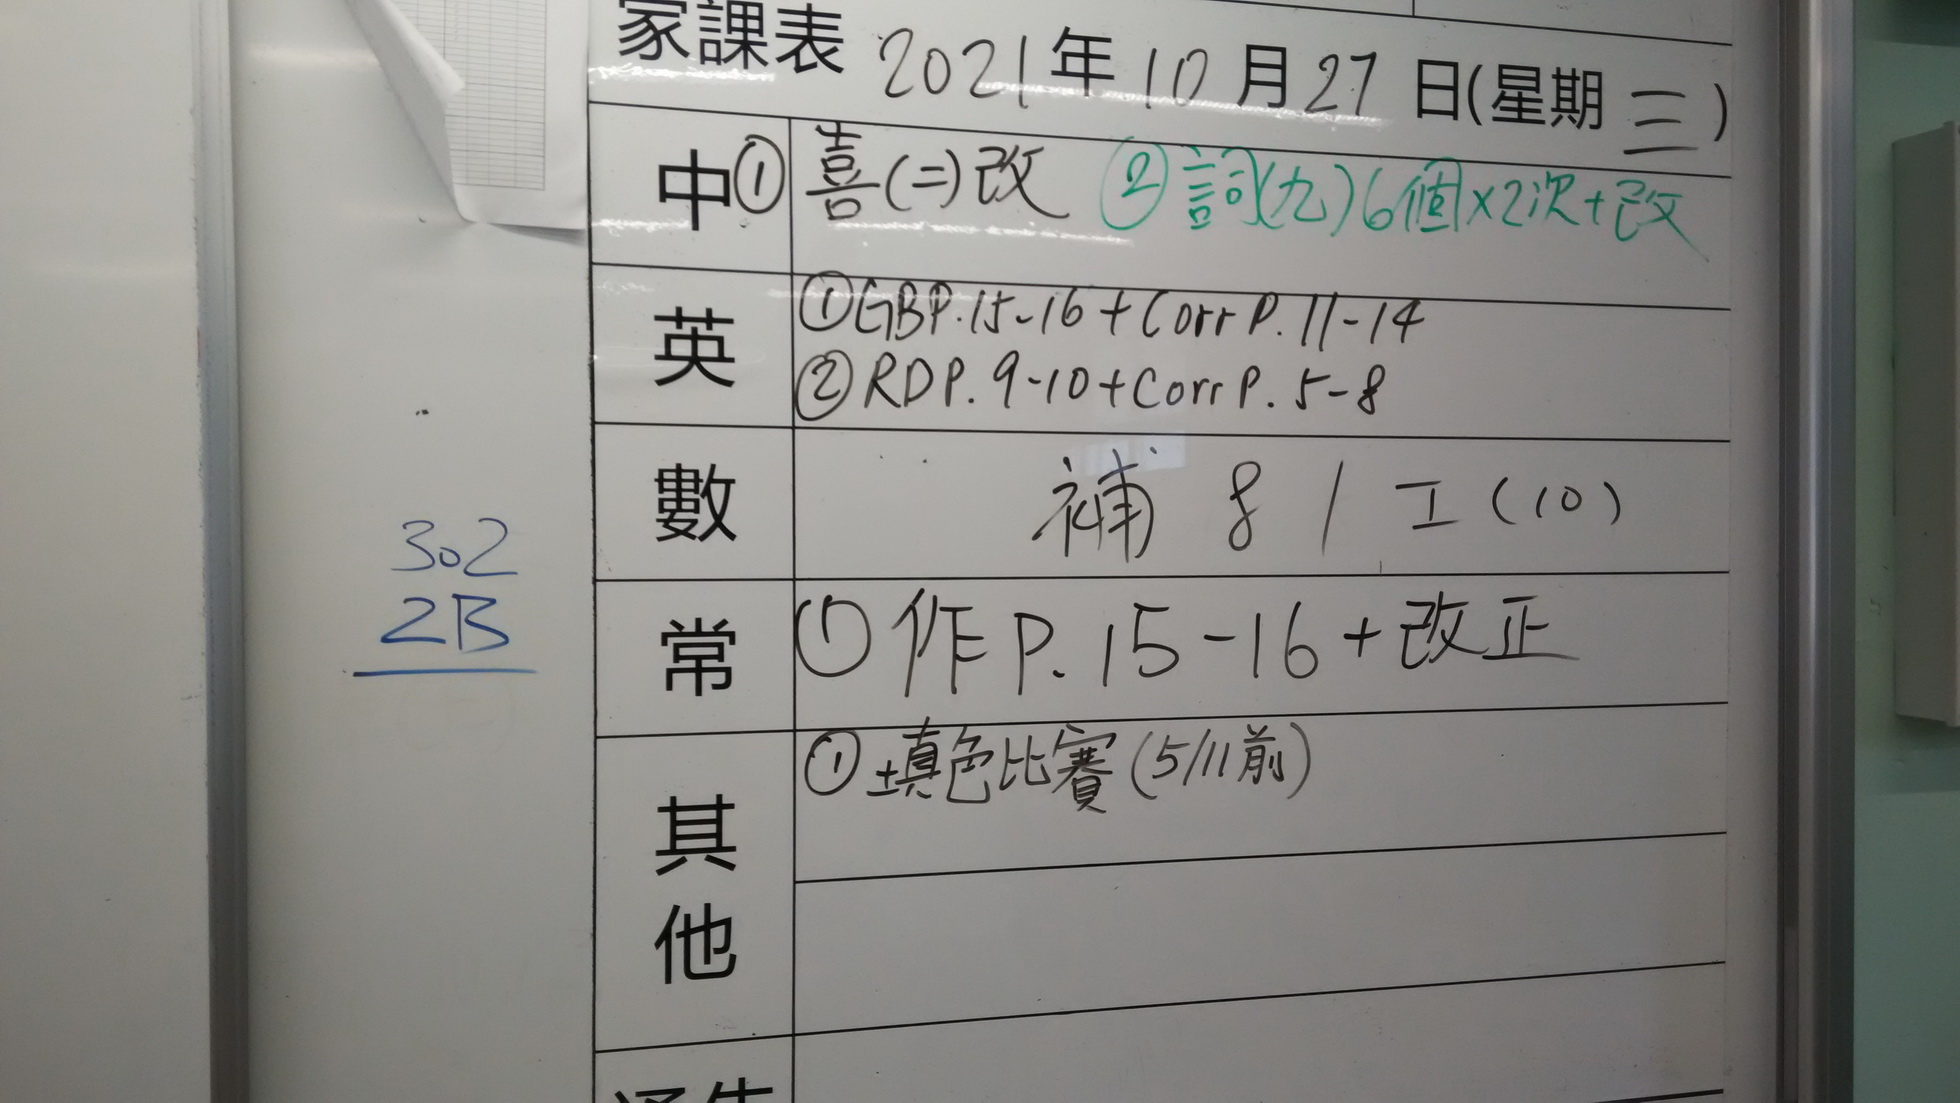 家課表 2021年10月27日(星期三)
中 ① 喜(二)改 ② 詞(九)6個×2次+改
英 ① GB P.15-16 + Corr P.11-14
② RD P.9-10 + Corr P.5-8
數 補 8 / 工(10)
常 ① 作 P.15-16 + 改正
其他 ① 填色比賽(5/11前)
302
2B